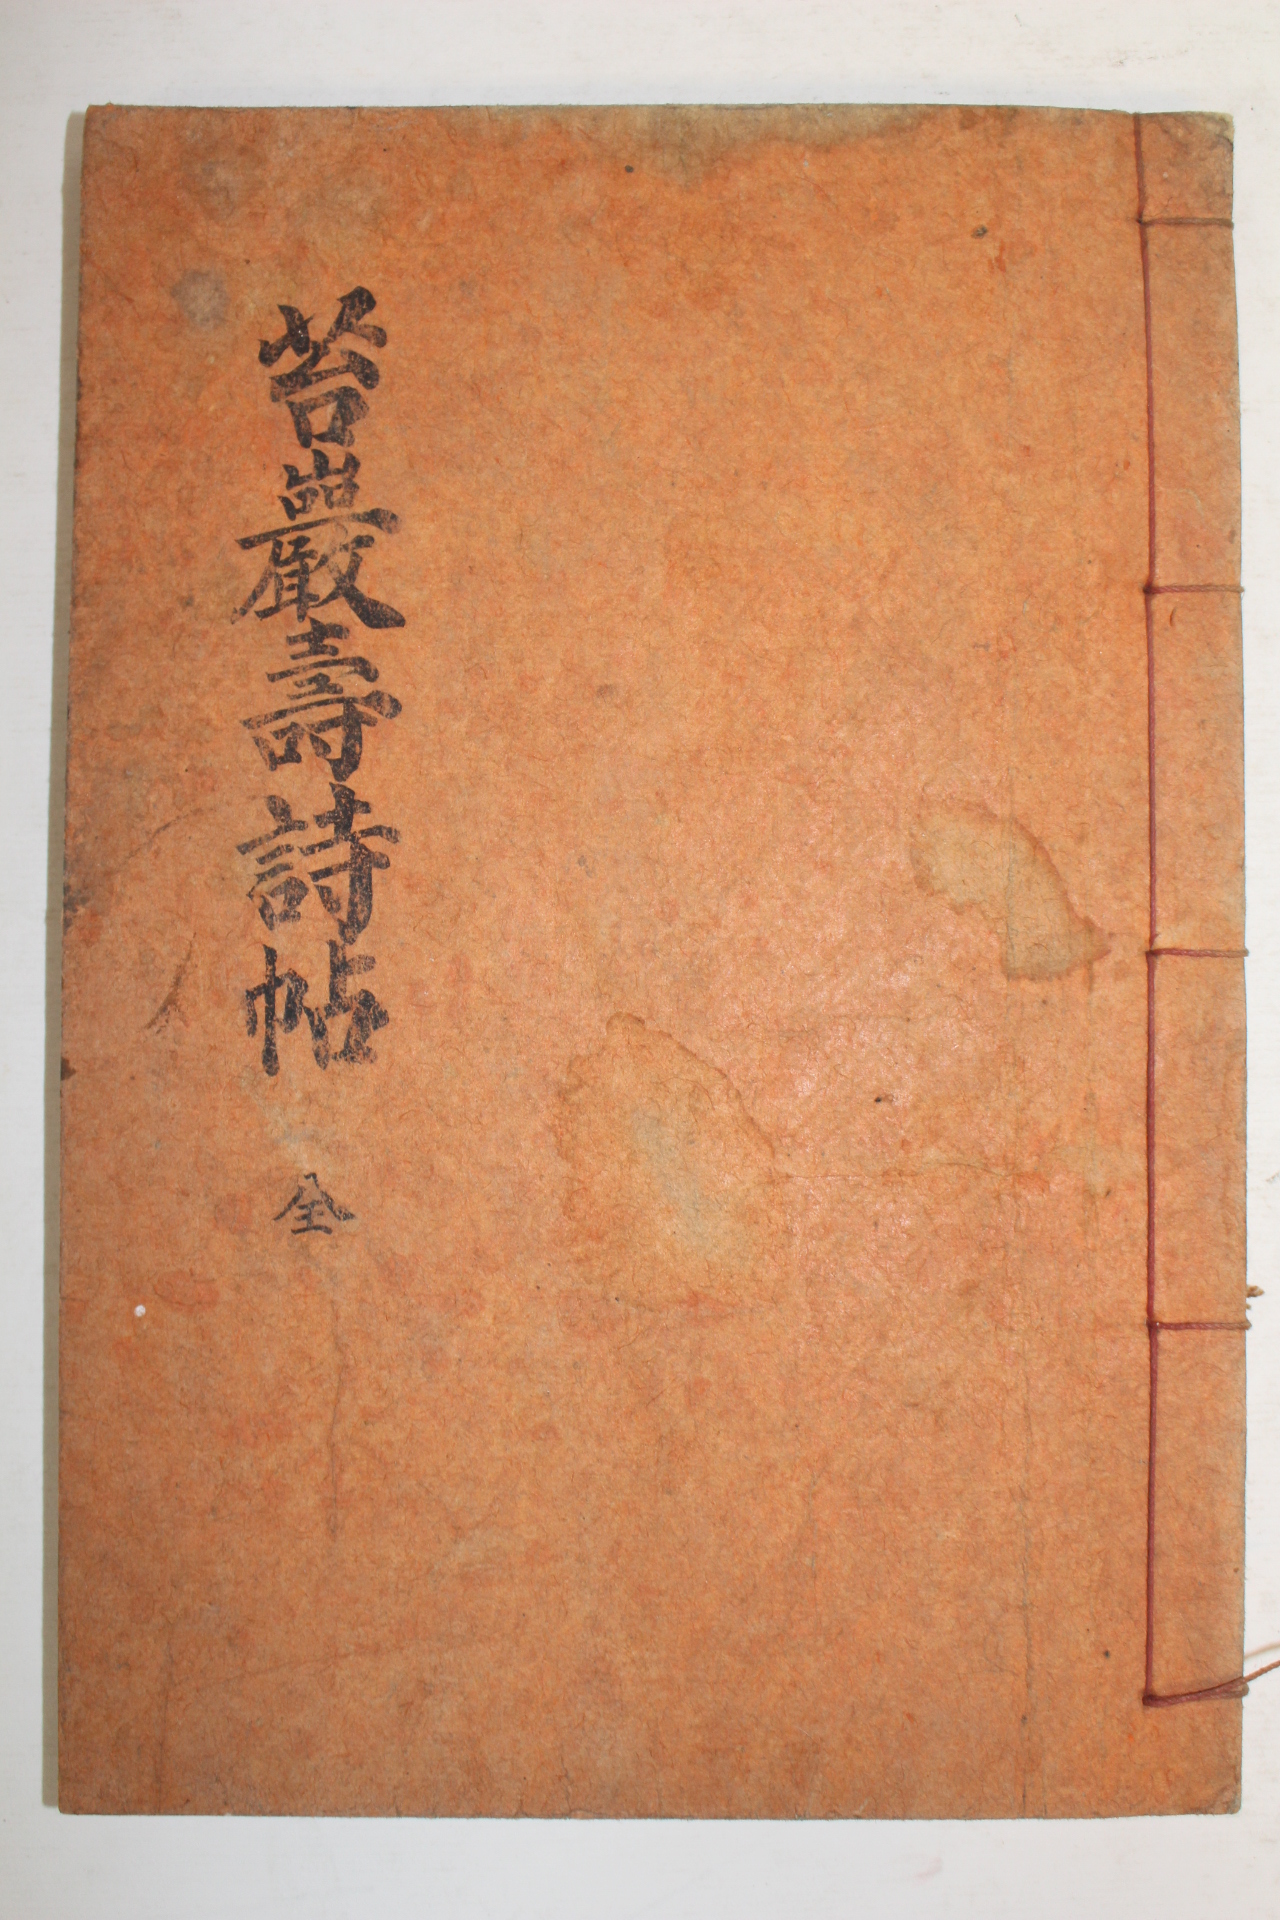 苔巖壽詩帖 全